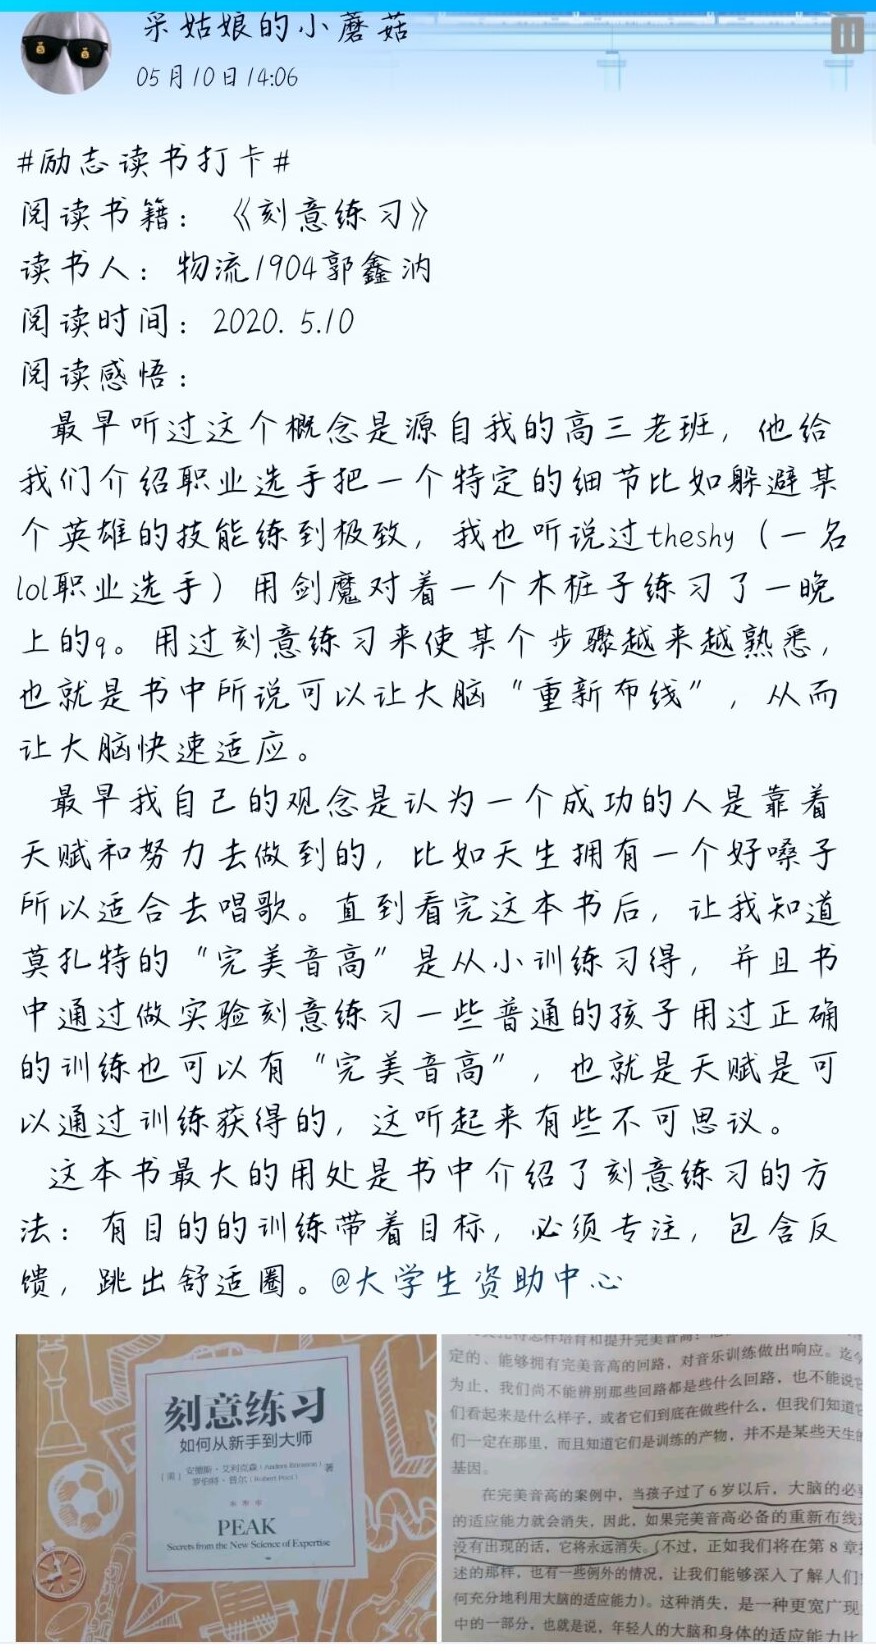 采姑娘的小蘑菇
05月10日14:06
#励志读书打卡#
阅读书籍：《刻意练习》
读书人：物流1904郭鑫汭
阅读时间：2020.5.10
阅读感悟：
最早听过这个概念是源自我的高三老班，他给
我们介绍职业选手把一个特定的细节比如躲避某
个英雄的技能练到极致，我也听说过theshy（一名
lol职业选手）用剑魔对着一个木桩子练习了一晚
上的q。用过刻意练习来使某个步骤越来越熟悉，
也就是书中所说可以让大脑“重新布线”，从而
让大脑快速适应。
最早我自己的观念是认为一个成功的人是靠着
天赋和努力去做到的，比如天生拥有一个好嗓子
所以适合去唱歌。直到看完这本书后，让我知道
莫扎特的“完美音高”是从小训练习得，并且书
中通过做实验刻意练习一些普通的孩子用过正确
的训练也可以有“完美音高”，也就是天赋是可
以通过训练获得的，这听起来有些不可思议。
这本书最大的用处是书中介绍了刻意练习的方
法：有目的的训练带着目标，必须专注，包含反
馈，跳出舒适圈。@大学生资助中心
刻意练习
如何从新手到大师
[美] 安德斯·艾利克森（Anders Ericsson）著
罗伯特·普尔（Robert Pool）
PEAK
Secrets from the New Science of Expertise
定的、能够拥有完美音高的回路，对音乐训练做出响应。迄今
为止，我们尚不能辨别那些回路都是些什么回路，也不能说它
们看起来是什么样子，或者它们到底在做些什么，但我们知道它
们一定在那里，而且知道它们是训练的产物，并不是某些天生的
基因。
在完美音高的案例中，当孩子过了6岁以后，大脑的必要
的适应能力就会消失，因此，如果完美音高必备的重新布线
没有出现的话，它将永远消失。（不过，正如我们将在第8章
述的那样，也有一些例外的情况，让我们能够深入了解人们
何充分地利用大脑的适应能力）。这种消失，是一种更宽广现
中的一部分，也就是说，年轻人的大脑和身体的适应能力比